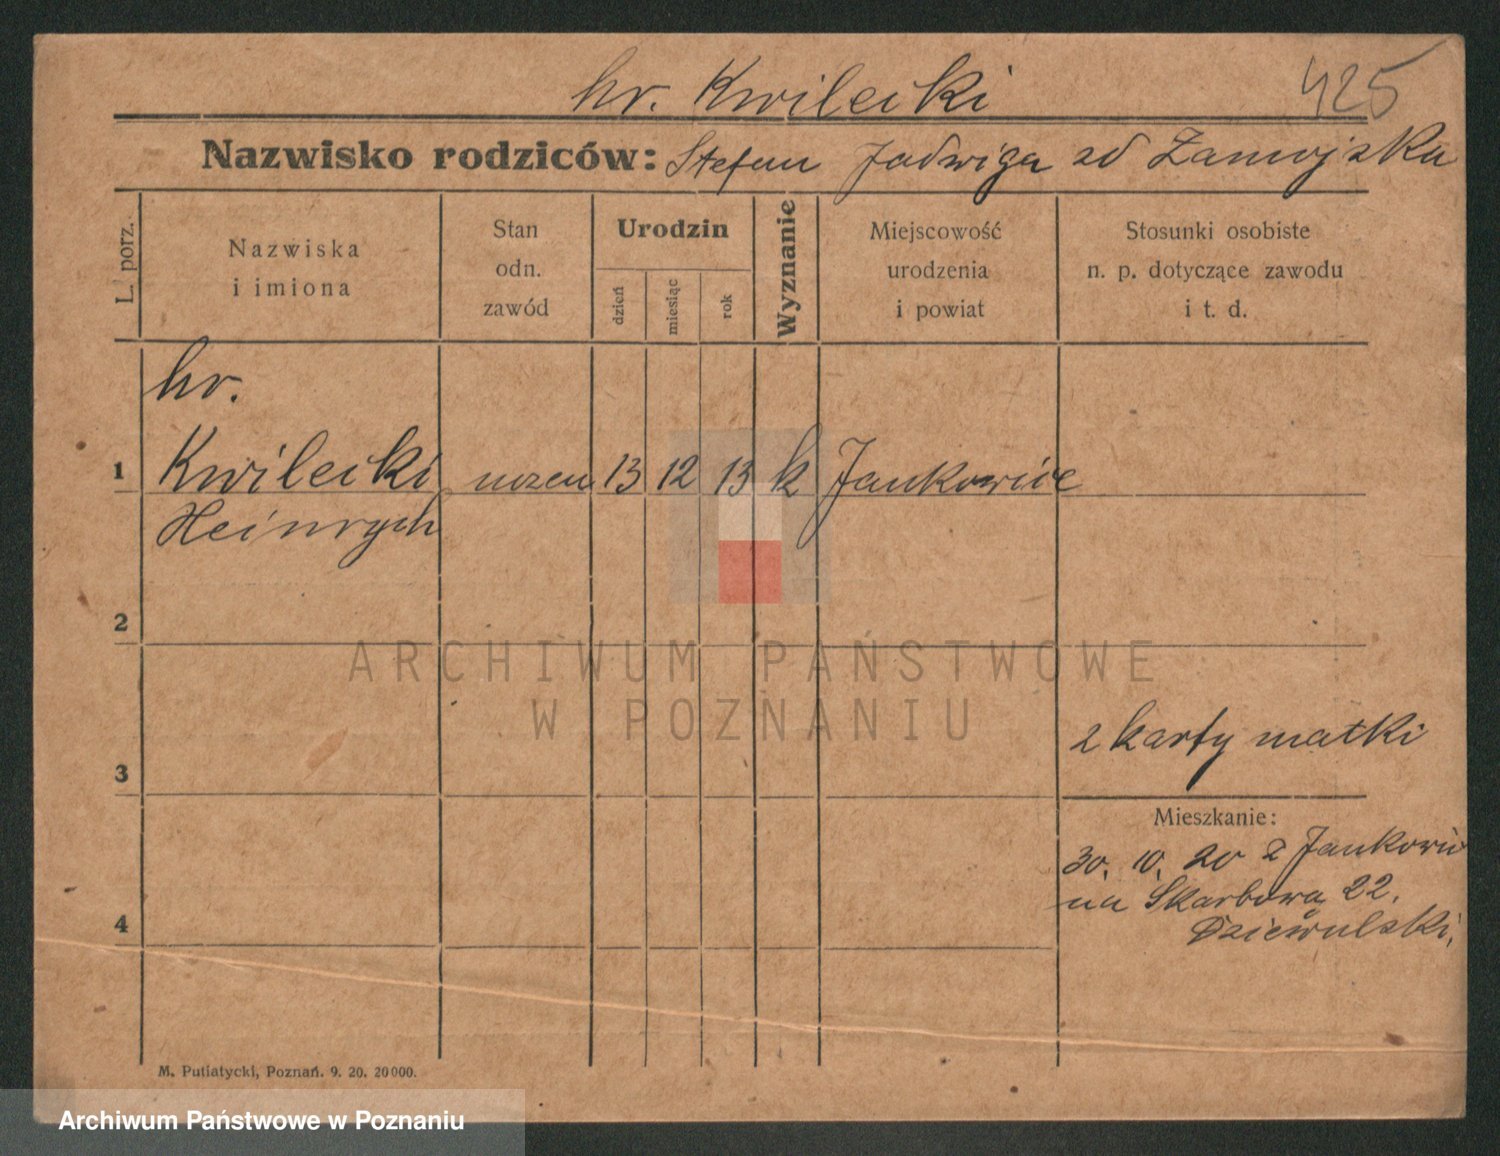 hr. Kwilecki 425
Nazwisko rodziców: Stefan Jadwiga zd Zamojska
L. porz.
Nazwiska
i imiona
Stan
odn.
zawód
Urodzin
dzień
miesiąc
rok
Wyznanie
Miejscowość
urodzenia
i powiat
Stosunki osobiste
n. p. dotyczące zawodu
i t. d.
hr.
1 Kwilecki 13 12 13 k Jankowice
Heinrych
2
ARCHIWUM PAŃSTWOWE
W POZNANIU
z karty matki
3
Mieszkanie:
30. 10. 20 z Jankowic
na Skarbowa 22.
Dziewulski,
4
M. Putiatycki, Poznań. 9. 20. 20000.
Archiwum Państwowe w Poznaniu